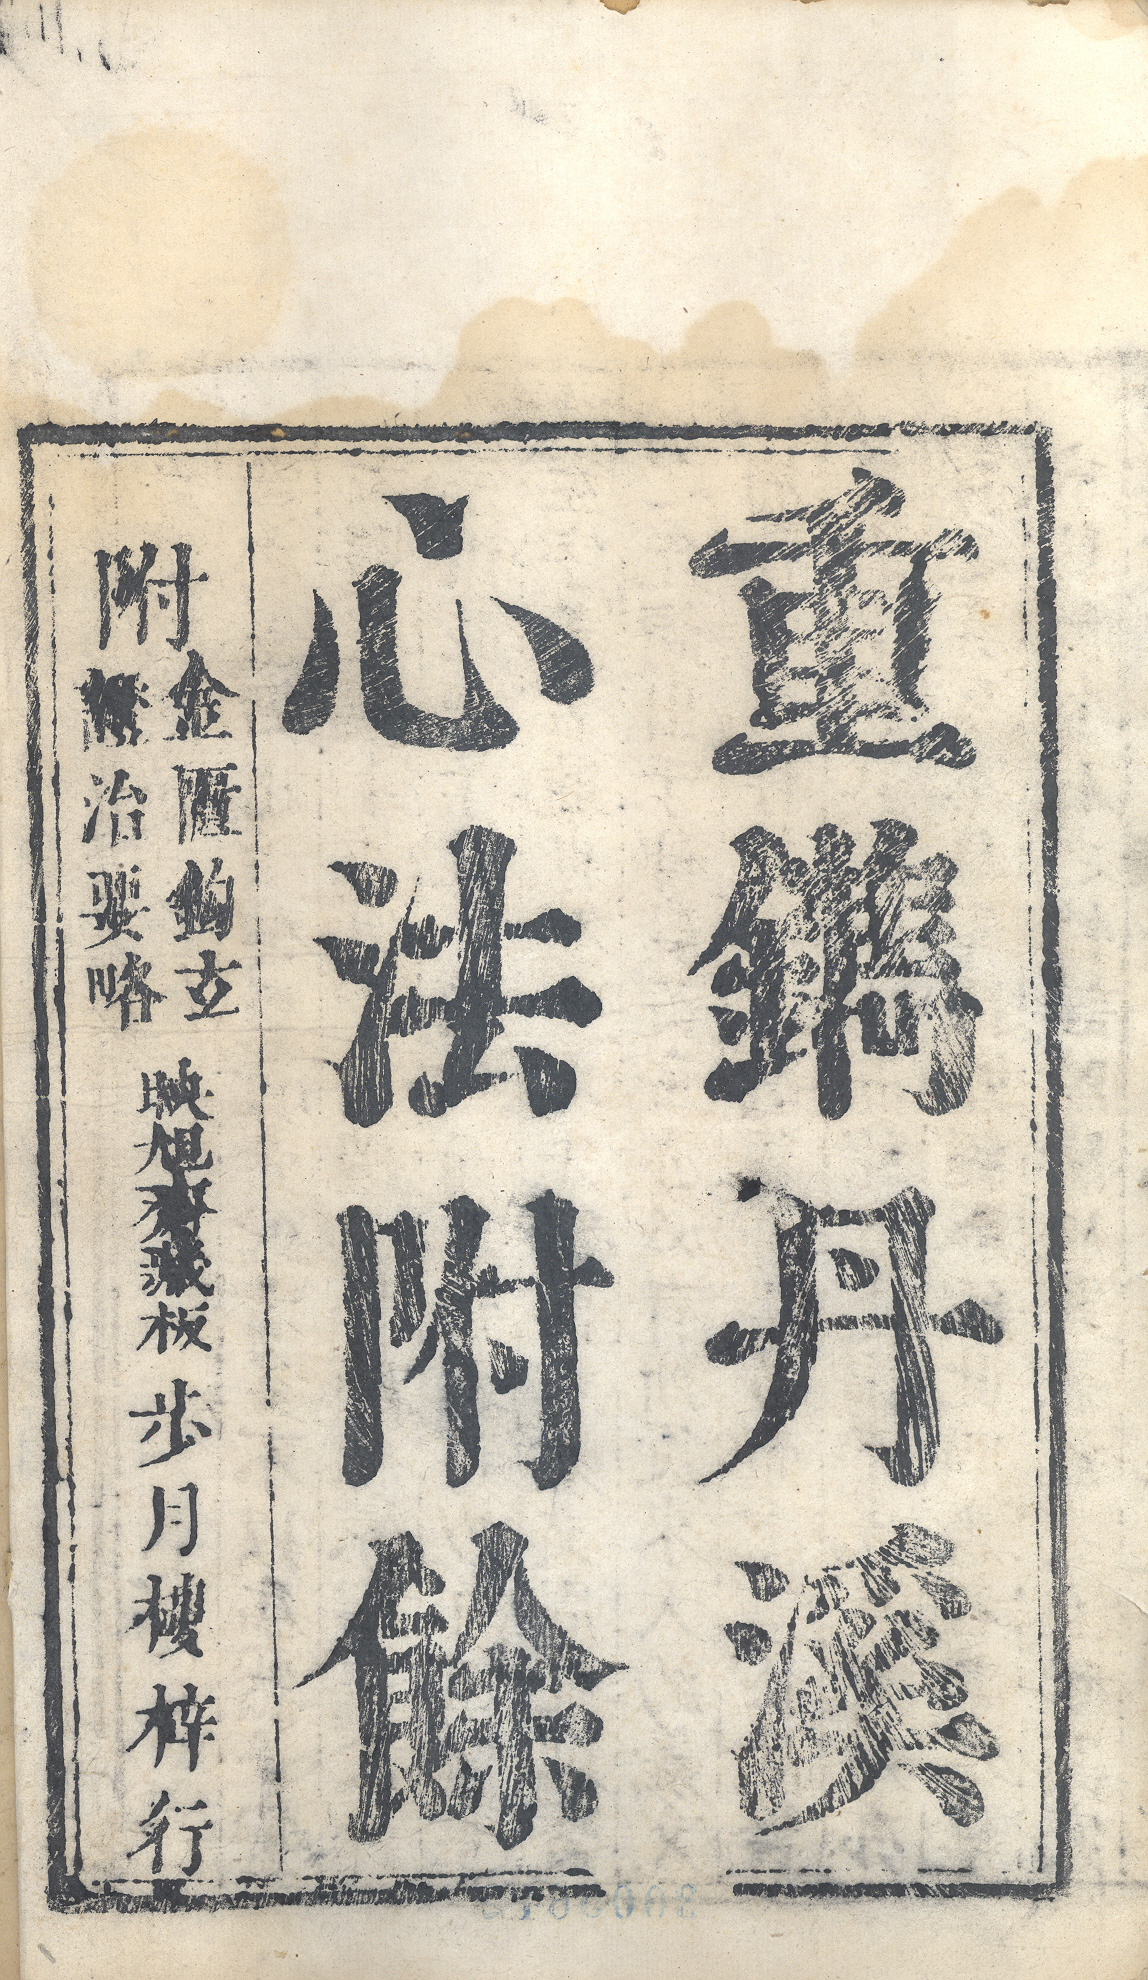 重鐫丹溪
心法附餘
附
金匱鈎玄
證治要略
映旭齋藏板
步月樓梓行